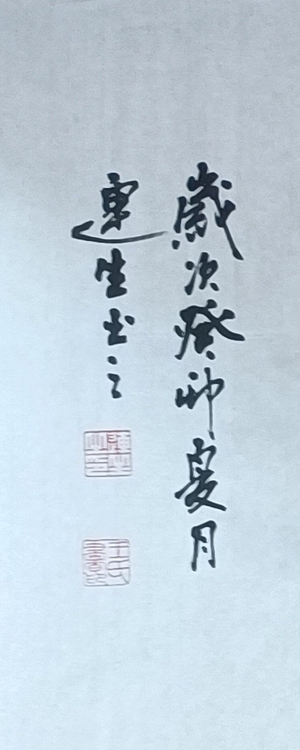 歲次癸卯夏月
連生书之